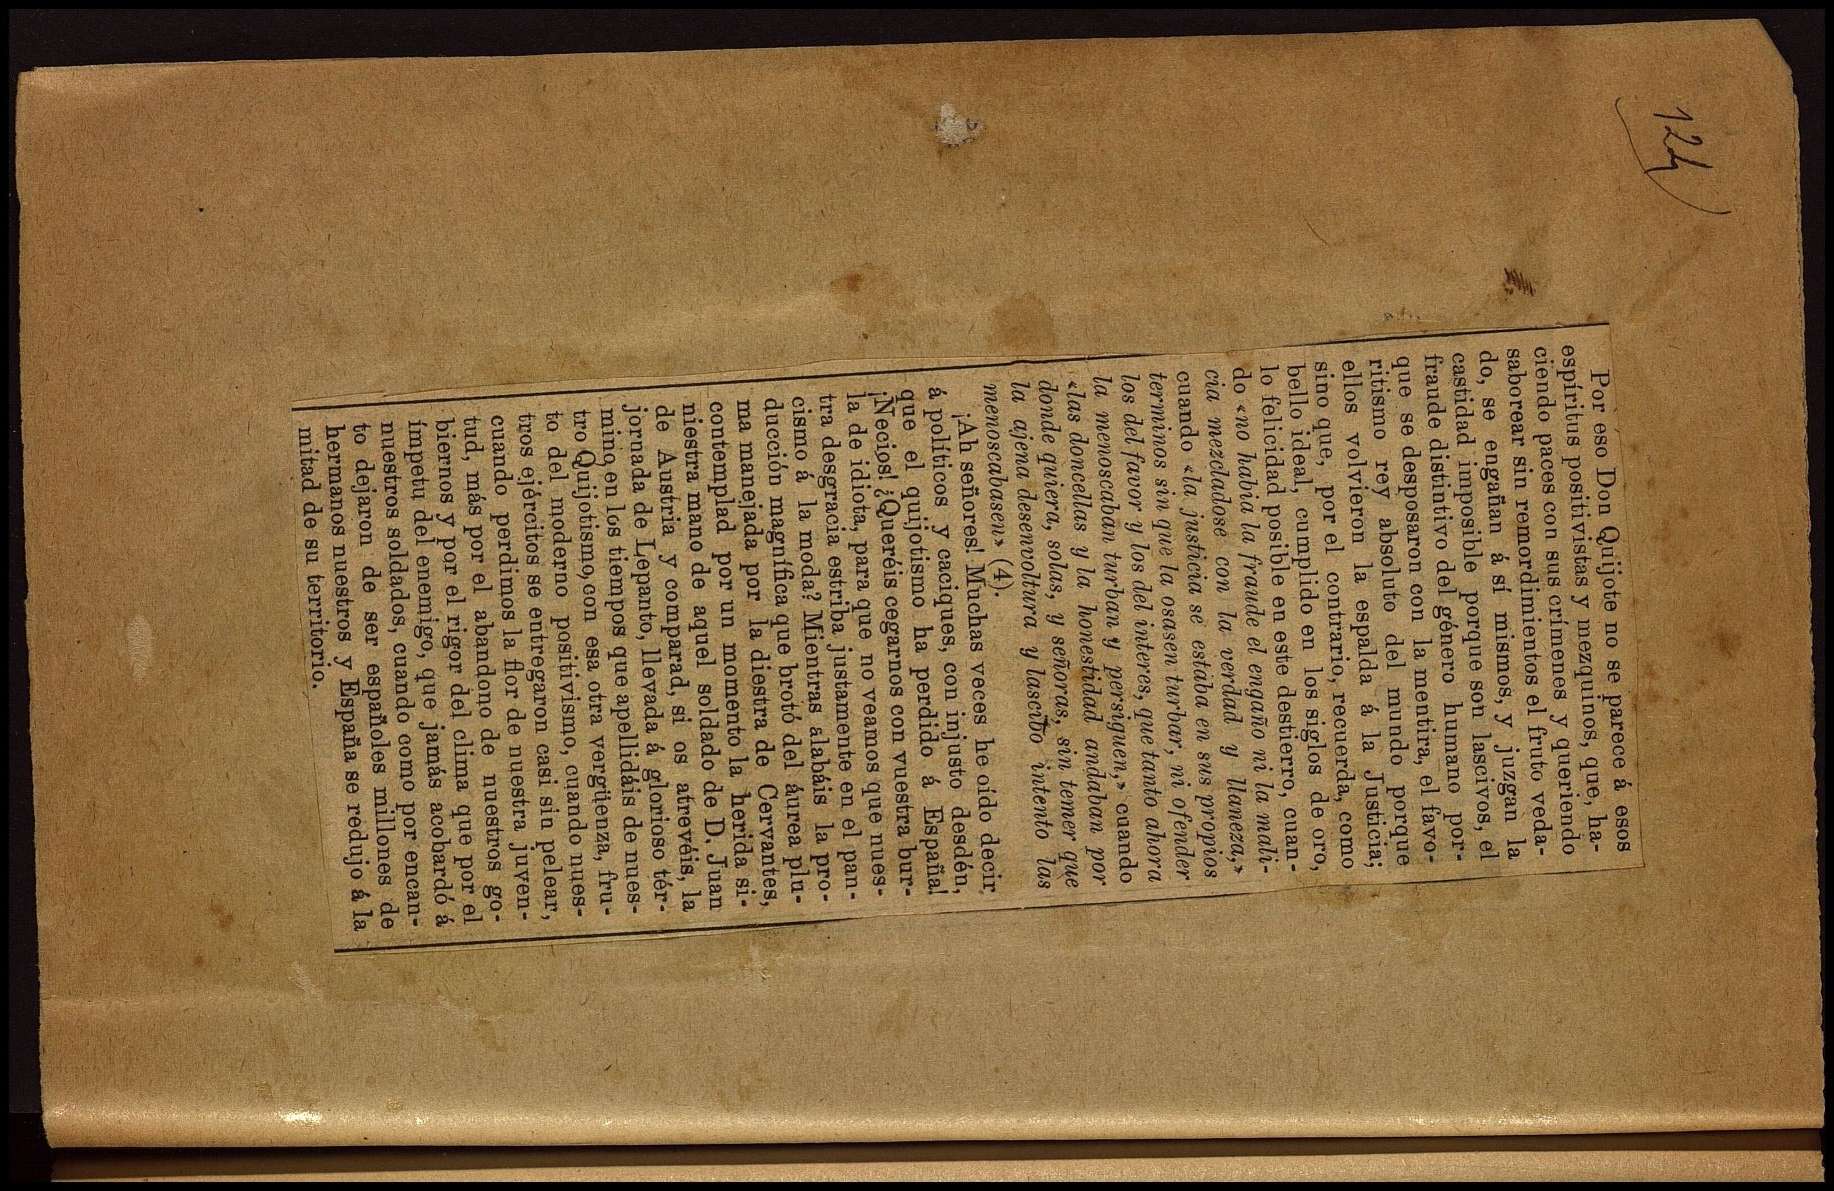 124
Por eso Don Quijote no se parece á esos
espíritus positivistas y mezquinos, que, ha-
ciendo paces con sus crímenes y queriendo
saborear sin remordimientos el fruto veda-
do, se engañan á sí mismos, y juzgan la
castidad imposible porque son lascivos, el
fraude distintivo del género humano por-
que se desposaron con la mentira, el favo-
ritismo rey absoluto del mundo porque
ellos volvieron la espalda á la Justicia;
sino que, por el contrario, recuerda, como
bello ideal, cumplido en los siglos de oro,
lo felicidad posible en este destierro, cuan-
do «no habia la fraude el engaño ni la mali-
cia mezcladose con la verdad y llaneza,»
cuando «la justicia se estaba en sus propios
terminos sin que la osasen turbar, ni ofender
los del favor y los del interes, que tanto ahora
la menoscaban turban y persiguen,» cuando
«las doncellas y la honestidad andaban por
donde quiera, solas, y señoras, sin temer que
la ajena desenvoltura y lascivo intento las
menoscabasen» (4).
¡Ah señores! Muchas veces he oído decir
á políticos y caciques, con injusto desdén,
que el quijotismo ha perdido á España!
¡Necios! ¿Queréis cegarnos con vuestra bur-
la de idiota, para que no veamos que nues-
tra desgracia estriba justamente en el pan-
cismo á la moda? Mientras alabáis la pro-
ducción magnífica que brotó del áurea plu-
ma manejada por la diestra de Cervantes,
contemplad por un momento la herida si-
niestra mano de aquel soldado de D. Juan
de Austria y comparad, si os atrevéis, la
jornada de Lepanto, llevada á glorioso tér-
mino en los tiempos que apellidáis de nues-
tro Quijotismo, con esa otra vergüenza, fru-
to del moderno positivismo, cuando nues-
tros ejércitos se entregaron casi sin pelear,
cuando perdimos la flor de nuestra juven-
tud, más por el abandono de nuestros go-
biernos y por el rigor del clima que por el
ímpetu del enemigo, que jamás acobardó á
nuestros soldados, cuando como por encan-
to dejaron de ser españoles millones de
hermanos nuestros y España se redujo á la
mitad de su territorio.